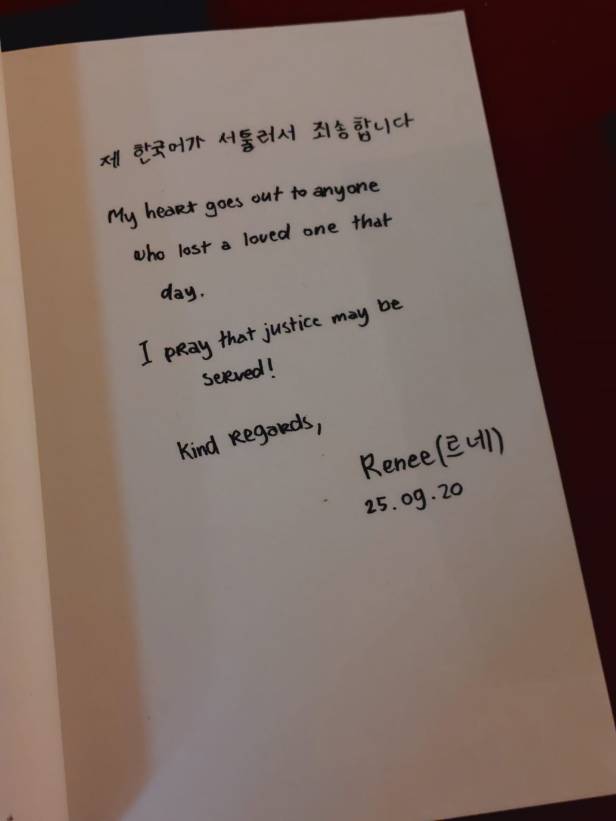 제 한국어가 서툴러서 죄송합니다
My heart goes out to anyone
who lost a loved one that
day.
I pray that justice may be
served!
Kind Regards,
Renee (르네)
25.09.20